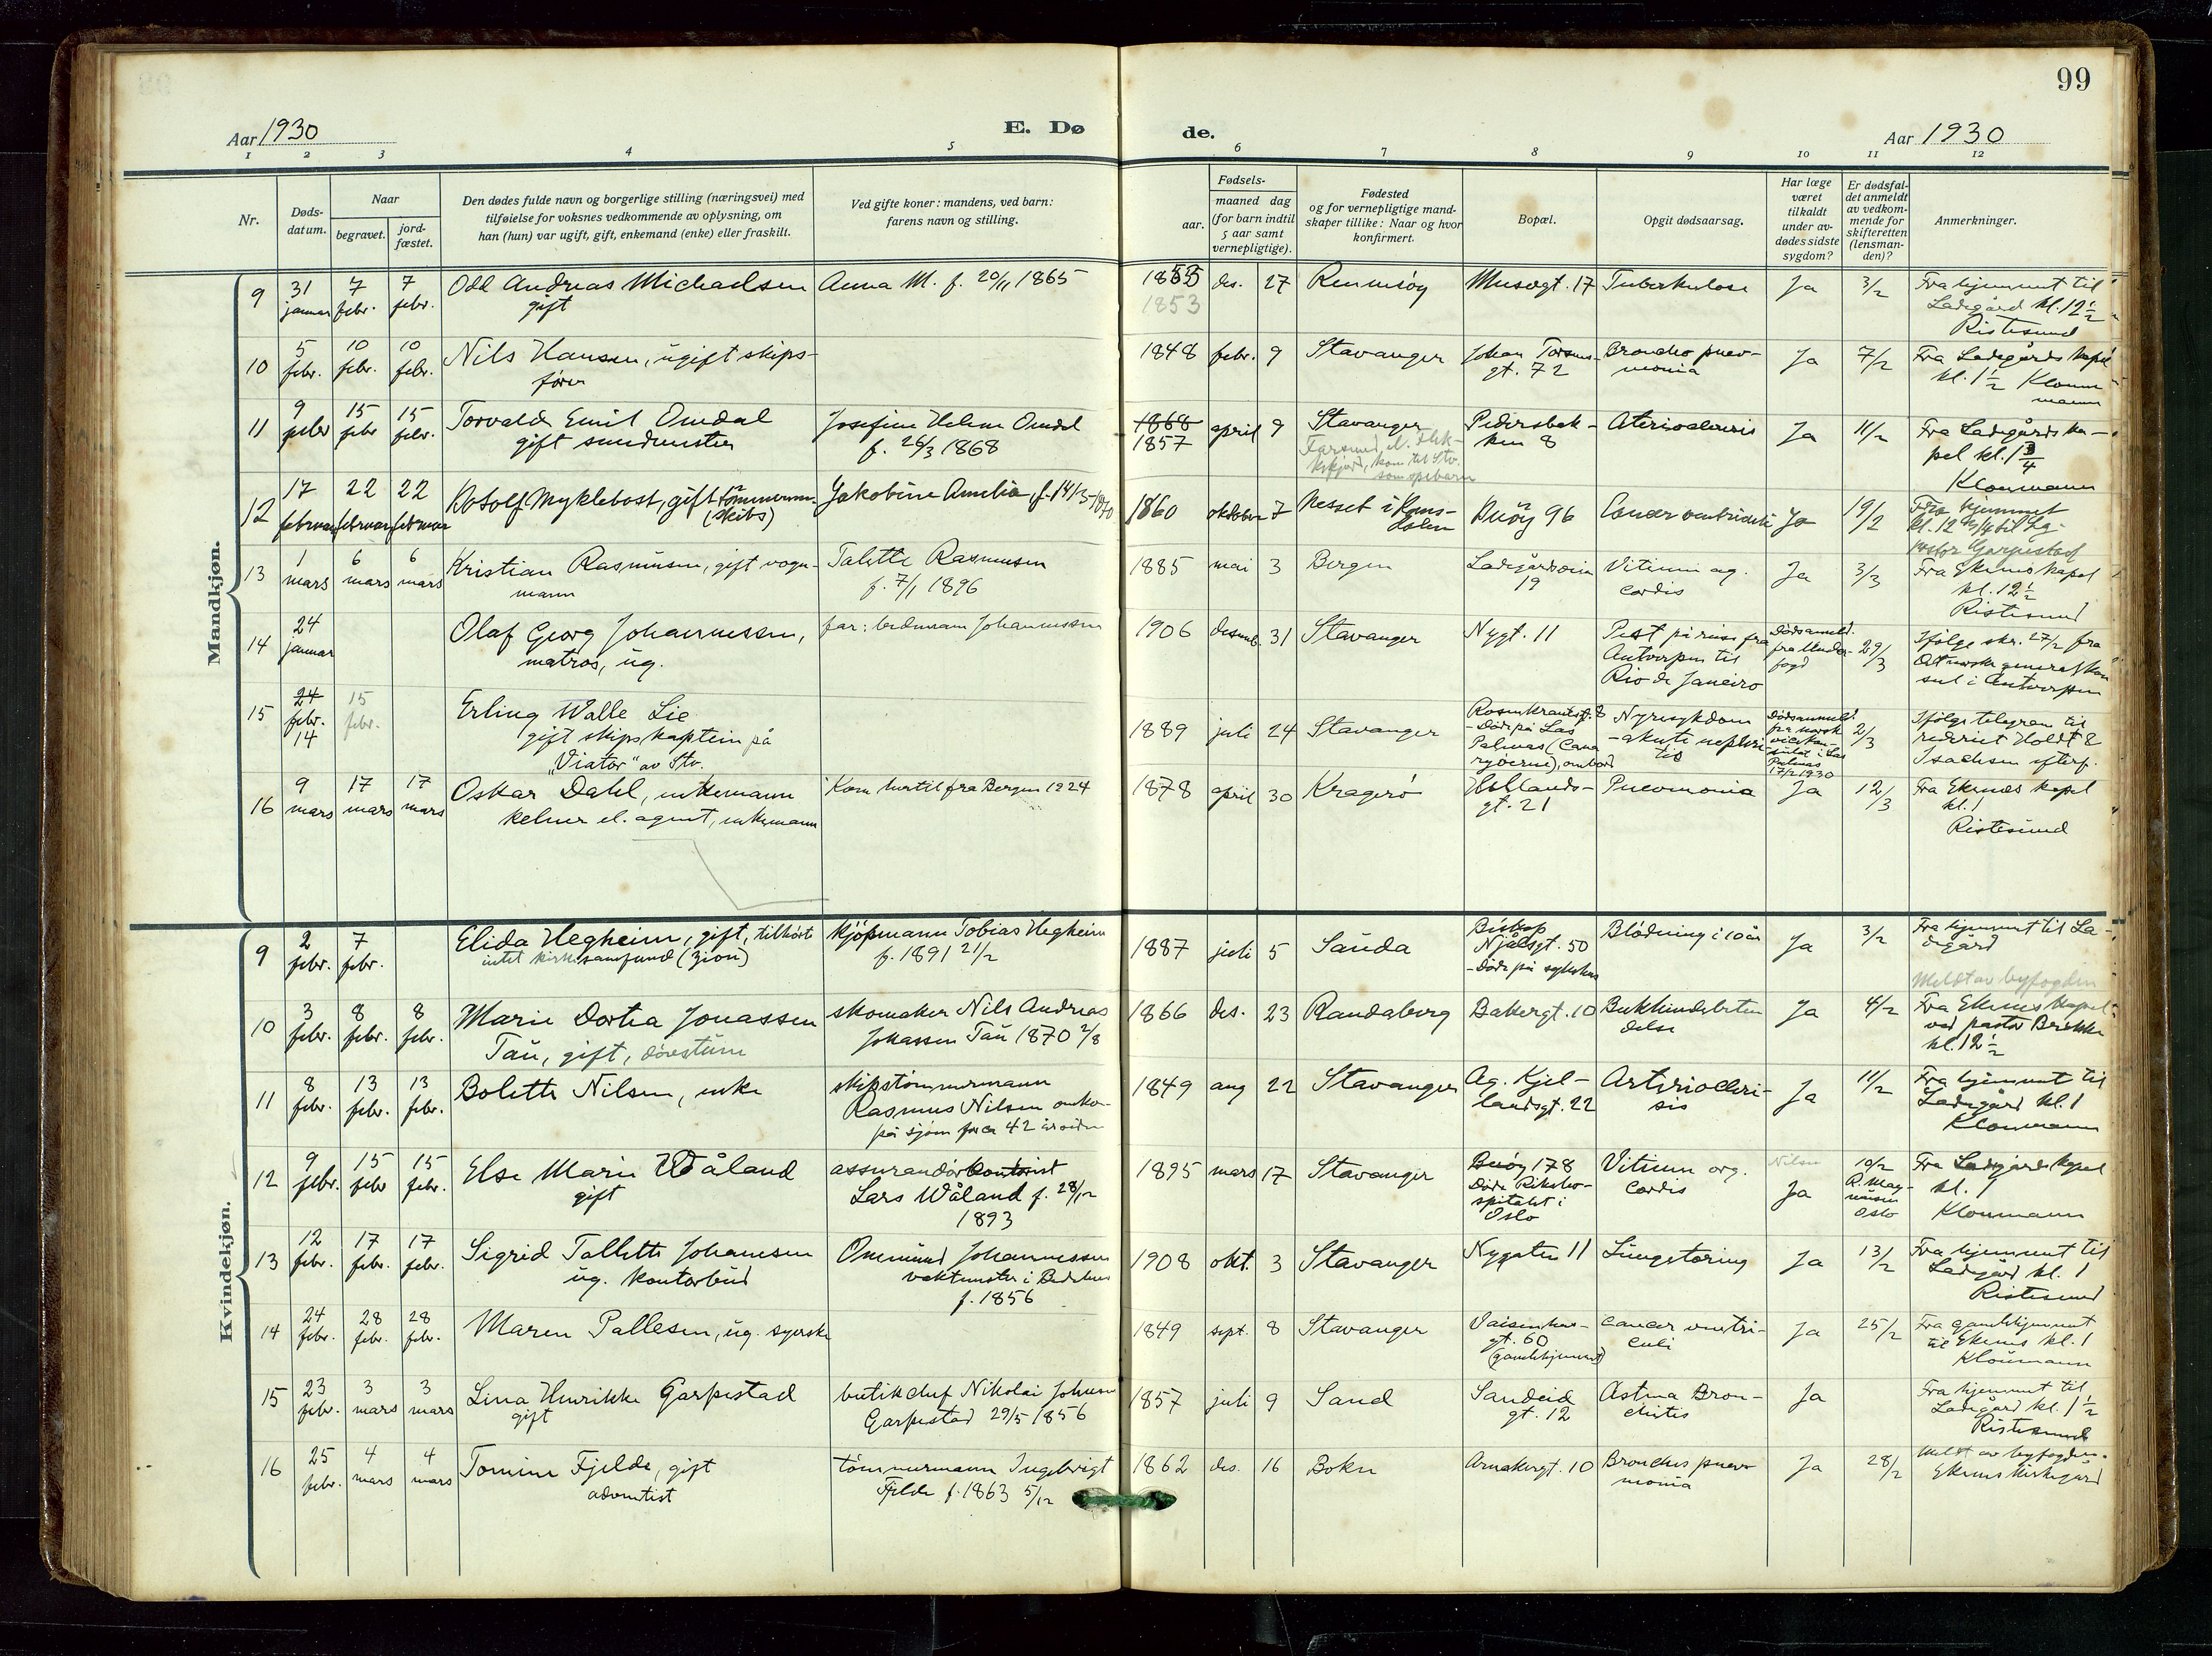 99
Aar 1930
E. Dø
de.
Aar 1930
1 2 3 4 5 6 7 8 9 10 11 12
Nr.
Døds-
datum.
Naar
begravet.
jord-
fæstet.
Den dødes fulde navn og borgerlige stilling (næringsvei) med
tilføielse for voksnes vedkommende av oplysning, om
han (hun) var ugift, gift, enkemand (enke) eller fraskilt.
Ved gifte koner: mandens, ved barn:
farens navn og stilling.
Fødsels-
aar.
maaned dag
(for barn indtil
5 aar samt
vernepligtige).
Fødested
og for vernepligtige mand-
skaper tillike: Naar og hvor
konfirmert.
Bopæl.
Opgit dødsaarsag.
Har læge
været
tilkaldt
under av-
dødes sidste
sygdom?
Er dødsfal-
det anmeldt
av vedkom-
mende for
skifteretten
(lensman-
den)?
Anmerkninger.
Mandkjøn.
9 31 januar 7 febr. 7 febr. Odd Andreas Michaelsen Anna M. f. 20/11 1865 des. 27 Rennisöy Musegt. 17 Tuberkulose Ja 3/2 Fra hjemmet til
gift 1853 Ladegård kl. 12 1/2
Ristesund
10 5 febr. 10 febr. 10 febr. Nils Hansen, ugift skips- 1848 febr. 9 Stavanger gt. 72 Broncho pnev- Ja 7/2 Fra Ladegårds kapel
förer monia kl. 1 1/2 Kloumann
11 9 febr 15 febr 15 febr. Torvald Emil Omdal Josefine Helene Omdal 1868 april 9 Stavanger Pedersbak- Ja 11/2 Fra Ladegårds ka-
gift f. 26/3 1868 1857 ken 8 pel kl. 1 3/4
Kloumann
12 17 februar 22 februar 22 februar Myklebost, gift tömmerm. Jakobine Amelia, f. 14/3-1870 1860 oktober 7 Nesset i Roms- Buöy 96 Cancer ventriculi Ja 19/2 Fra hjemmet
(skibs) dalen pastor Garpestad
13 1 mars 6 mars 6 mars Kristian Rasmussen, gift vogn- Talette Rasmussen 1885 mai 3 Bergen Ladegårdsvein Vitium og. Ja 3/3 Fra Ekenes kapel
mann f. 7/1 1896 19 cordis kl. 12 1/2
Ristesund
14 24 januar Olaf Georg Johannessen, far: Johannessen 1906 desemb. 31 Stavanger Nygt. 11 Pest på reise fra Dödsanmeld. 29/3 Ifölge skr. 27/2 fra
matros, ug. Antwerpen til generalkon-
Rio de Janeiro sul i Antwerpen
15 24 febr. 14 15 febr. Erling Walle Lie 1889 juli 24 Stavanger Rosenkrantzgt. 8 Nyresykdom Dödsanmeld. 2/3 Ifölge telegram til
gift skipskaptein på - Död på Las - akutt nephri- fra norsk rederiet Holdt &
"Viator" av Stv. Palmas tis 17/2 1930 Isachsen efterf.
16 9 mars 17 mars 17 mars Oskar Dahl, enkemann Kom hertil fra Bergen 1924 1878 april 30 Krageró Hetlands- Pneomonia Ja 12/3 Fra Ekenes kapel
kelner el. agent, enkemann gt. 21 kl. 1
Ristesund
Kvindekjøn.
9 2 febr. 7 febr. Elida Hegheim, gift, tilhörte kjöpmann Tobias Hegheim 1887 juli 5 Sauda Biskop Blödning i Ja 3/2 Fra hjemmet til La-
intet kirkesamfund (Zion) f. 1891 21/2 Njålsgt. 50 degård
- Död på sykehus Meldt av byfogden
10 3 febr. 8 febr. 8 febr. Marie Dortea Jonassen skomaker Nils Andreas 1866 des. 23 Randaberg Bakergt. 10 Bukhindebeten Ja 4/2 Fra Ekenes kapel
Tau, gift, dövestum Jokassen Tau 1870 2/8 delse ved pastor Brekke
kl. 12 1/2
11 8 febr. 13 febr. 13 febr. Bolette Nilsen, enke skipstömmermann 1849 aug 22 Stavanger Ag. Kjel- Arterioscleri- Ja 11/2 Fra hjemmet til
Rasmus Nilsen omko- landsgt. 22 sis Ladegård kl. 1
på sjöen for ca 42 år siden Kloumann
12 9 febr. 15 febr 15 febr. Else Marie Wåland assurandör 1895 mars 17 Stavanger Buöy 178 Vitium org. Ja 10/2 Fra Ladegårds kapel
gift Lars Wåland f. 28/12 Död Riksho- cordis Oslo kl. 1
1893 spitalet i Kloumann
Oslo
13 12 febr. 17 febr. 17 febr. Sigrid Tallette Johannesen Onemund Johannessen 1908 okt. 3 Stavanger Nygaten 11 Lungetæring Ja 13/2 Fra hjemmet til
ug. kontorbud vaktmester i Bedehus Ladegård kl. 1
f. 1856 Ristesund
14 24 febr. 28 febr. 28 febr. Maren Pallesen, ug. syerske 1849 sept. 8 Stavanger Vaisenhus- Cancer ventri- Ja 25/2 Fra gamlehjemmet
gt. 60 culi til Ekenes kl. 1
(gamlehjemmet) Kloumann
15 23 febr. 3 mars 3 mars Lina Henrikke Garpestad butikchef Nikolai Johnsen 1857 juli 9 Sand Sandeid Astma Bron- Ja Fra hjemmet til
gift Garpestad 29/5 1856 gt. 12 chitis Ladegård kl. 1 1/2
Ristesund
16 25 febr. 4 mars 4 mars Tomine Fjelde, gift tömmermann Ingebrigt 1862 des. 16 Bokn Arnakergt. 10 Bronchus pnev- Ja 28/2 Meldt av byfogden.
adventist Fjelde f. 1863 5/12 monia Ekenes kirkegård